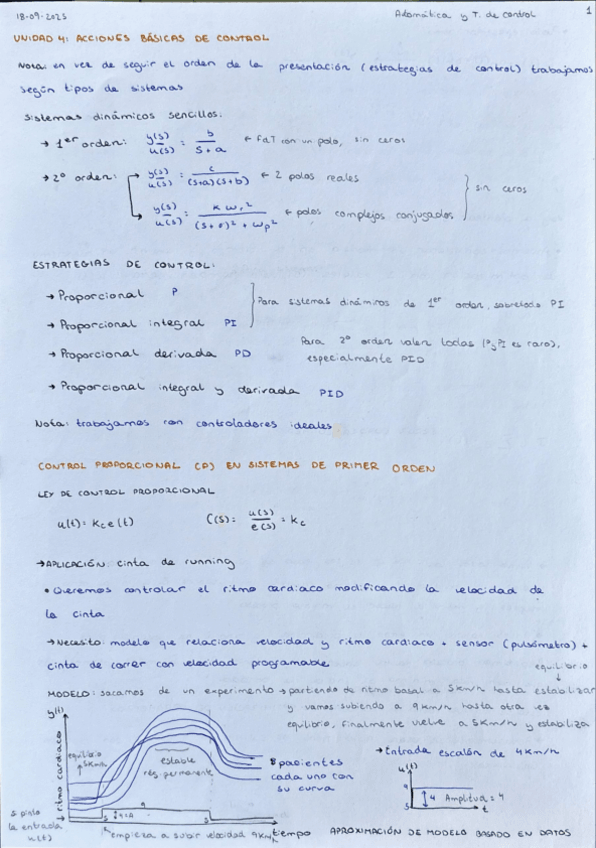 18-09-2025 Automática y T. de control 1
UNIDAD 4: ACCIONES BÁSICAS DE CONTROL
Nota: en vez de seguir el orden de la presentación (estrategias de control) trabajamos
según tipos de sistemas
Sistemas dinámicos sencillos:
→ 1er orden: y(s)/u(s) = b/(s+a) ← FdT con un polo, sin ceros
→ 2º orden: y(s)/u(s) = c/((s+a)(s+b)) ← 2 polos reales
y(s)/u(s) = K ωr²/((s+r)²+ωp²) ← polos complejos conjugados } sin ceros
ESTRATEGIAS DE CONTROL:
→ Proporcional P
→ Proporcional integral PI
Para sistemas dinámicos de 1er orden, sobretodo PI
→ Proporcional derivada PD
Para 2º orden valen todas (P y PI es raro),
especialmente PID
→ Proporcional integral y derivada PID
Nota: trabajamos con controladores ideales
CONTROL PROPORCIONAL (P) EN SISTEMAS DE PRIMER ORDEN
LEY DE CONTROL PROPORCIONAL
u(t) = Kc e(t) C(s) = u(s)/e(s) = Kc
→ APLICACIÓN: cinta de running
• Queremos controlar el ritmo cardiaco modificando la velocidad de
la cinta
→ Necesito: modelo que relaciona velocidad y ritmo cardiaco + sensor (pulsómetro) +
cinta de correr con velocidad programable
equilibrio
MODELO: sacamos de un experimento → partiendo de ritmo basal a 5km/h hasta estabilizar
y vamos subiendo a 9km/h hasta otra vez
equilibrio, finalmente vuelve a 5km/h y estabiliza
y(t)
ritmo cardiaco
equilibrio
5km/h
estable
reg. permanente
8 pacientes
cada uno con
su curva
→ Entrada escalón de 4km/h
u(t)
9
5
4 Amplitud = 4
t
9
5
5
si pinto
la entrada
u(t)
empieza a subir velocidad 9km/h
tiempo
APROXIMACIÓN DE MODELO BASADO EN DATOS